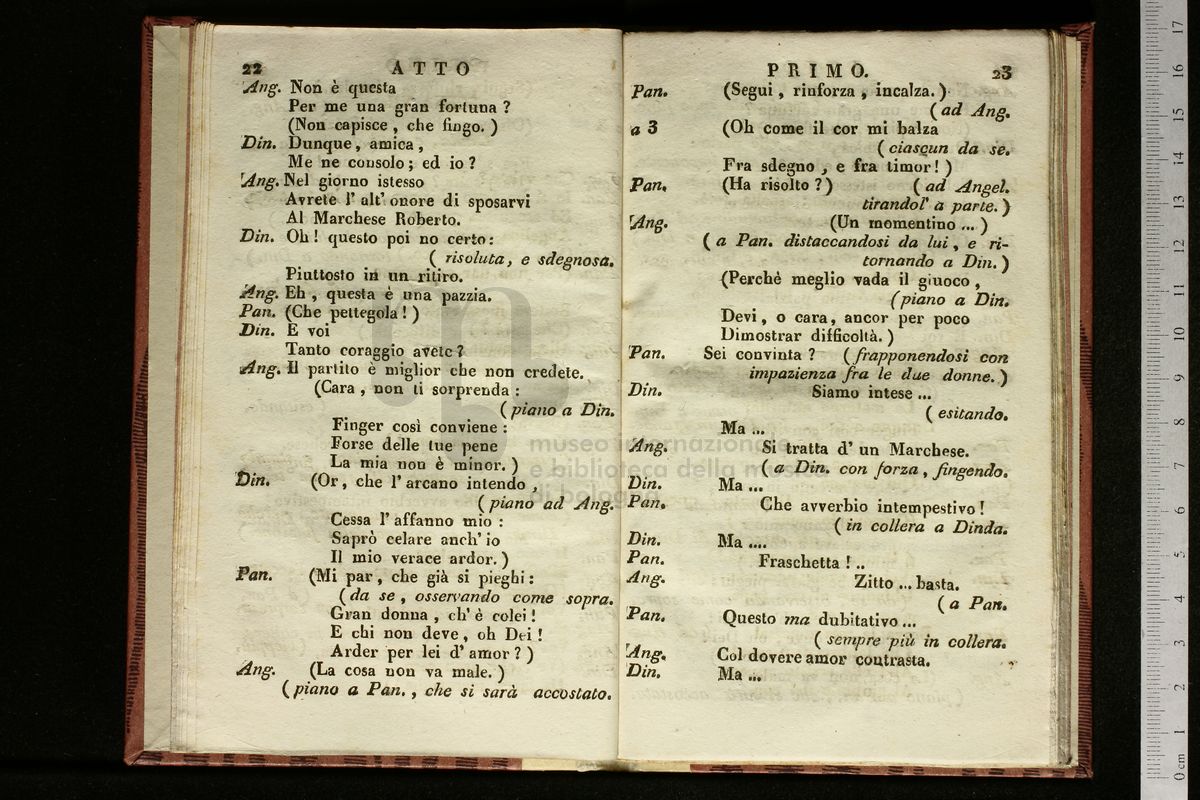 22 ATTO
Ang. Non è questa
Per me una gran fortuna ?
(Non capisce , che fingo. )
Din. Dunque, amica ,
Me ne consolo ; ed io ?
Ang. Nel giorno istesso
Avrete l' alt' onore di sposarvi
Al Marchese Roberto.
Din. Oh ! questo poi no certo :
( risoluta, e sdegnosa.
Piuttosto in un ritiro.
Ang. Eh , questa è una pazzia.
Pan. (Che pettegola ! )
Din. E voi
Tanto coraggio avete ?
Ang. Il partito è miglior che non credete.
(Cara , non ti sorprenda :
( piano a Din.
Finger così conviene :
Forse delle tue pene
La mia non è minor. )
Din. (Or, che l' arcano intendo ,
( piano ad Ang.
Cessa l' affanno mio :
Saprò celare anch' io
Il mio verace ardor. )
Pan. (Mi par , che già si pieghi :
( da se , osservando come sopra.
Gran donna , ch' è colei !
E chi non deve , oh Dei !
Arder per lei d' amor ? )
Ang. (La cosa non va male. )
( piano a Pan. , che si sarà accostato.
PRIMO. 23
Pan. (Segui , rinforza , incalza. )
( ad Ang.
a 3 (Oh come il cor mi balza
( ciascun da se.
Fra sdegno , e fra timor ! )
Pan. (Ha risolto ? ) ( ad Angel.
tirandol' a parte. )
Ang. (Un momentino ... )
( a Pan. distaccandosi da lui , e ri-
tornando a Din. )
(Perchè meglio vada il giuoco ,
(piano a Din.
Devi , o cara , ancor per poco
Dimostrar difficoltà. )
Pan. Sei convinta ? ( frapponendosi con
impazienza fra le due donne. )
Din. Siamo intese ...
( esitando.
Ma ...
Ang. Si tratta d' un Marchese.
( a Din. con forza , fingendo.
Din. Ma ...
Pan. Che avverbio intempestivo !
( in collera a Dinda.
Din. Ma ....
Pan. Fraschetta ! ..
Ang. Zitto ... basta.
( a Pan.
Pan. Questo ma dubitativo ...
( sempre più in collera.
Ang. Col dovere amor contrasta.
Din. Ma ...
museo internazionale
e biblioteca della musica
di bologna
17
16
15
14
13
12
11
10
9
8
7
6
5
4
3
2
1
0 cm